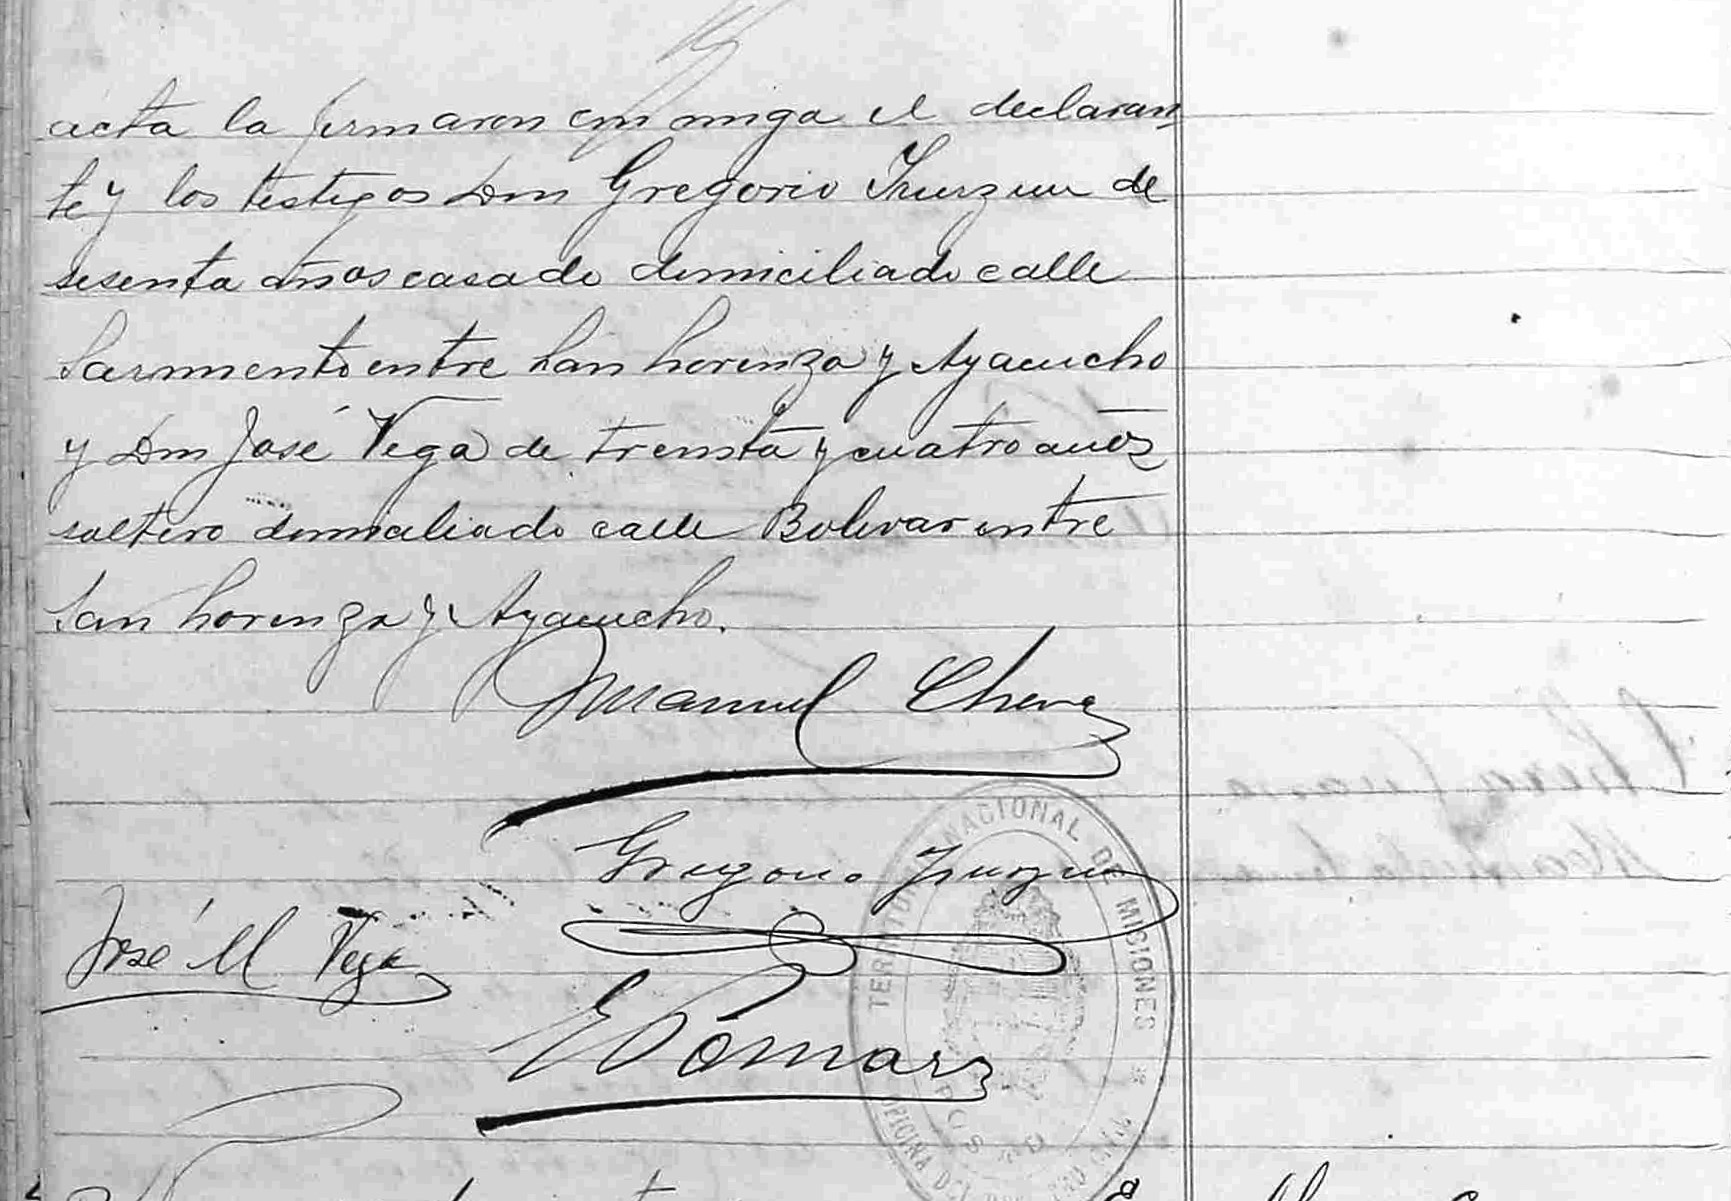 acta la firmaron conmigo el declaran
te y los testigos Don Gregorio Irurzun de
sesenta años casado domiciliado calle
Sarmiento entre San Lorenzo y Ayacucho
y Don José Vega de treinta y cuatro años
soltero domiciliado calle Bolivar entre
San Lorenzo y Ayacucho.
Manuel
Gregorio Irurzun
José M Vega
TERRITORIO NACIONAL DE MISIONES
OFICINA DEL REGISTRO CIVIL
POSADAS